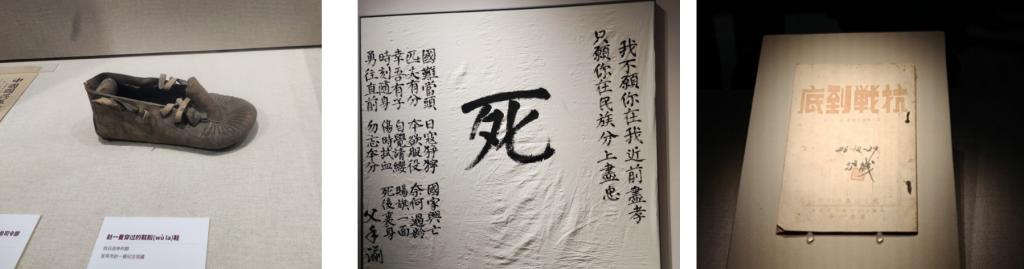 赵一曼穿过的靰鞡(wù la)鞋
抗日战争时期
司令部
我不願你在我近前盡孝
只願你在民族分上盡忠
死
國難當頭 日寇猙獰 國家興亡
匹夫有分 本欲服役 奈何過齡
幸吾有子 自覺請纓 賜旗一面
時刻隨身 傷時拭血 死後裹身
勇往直前 勿忘本分 父手諭
抗戦到底